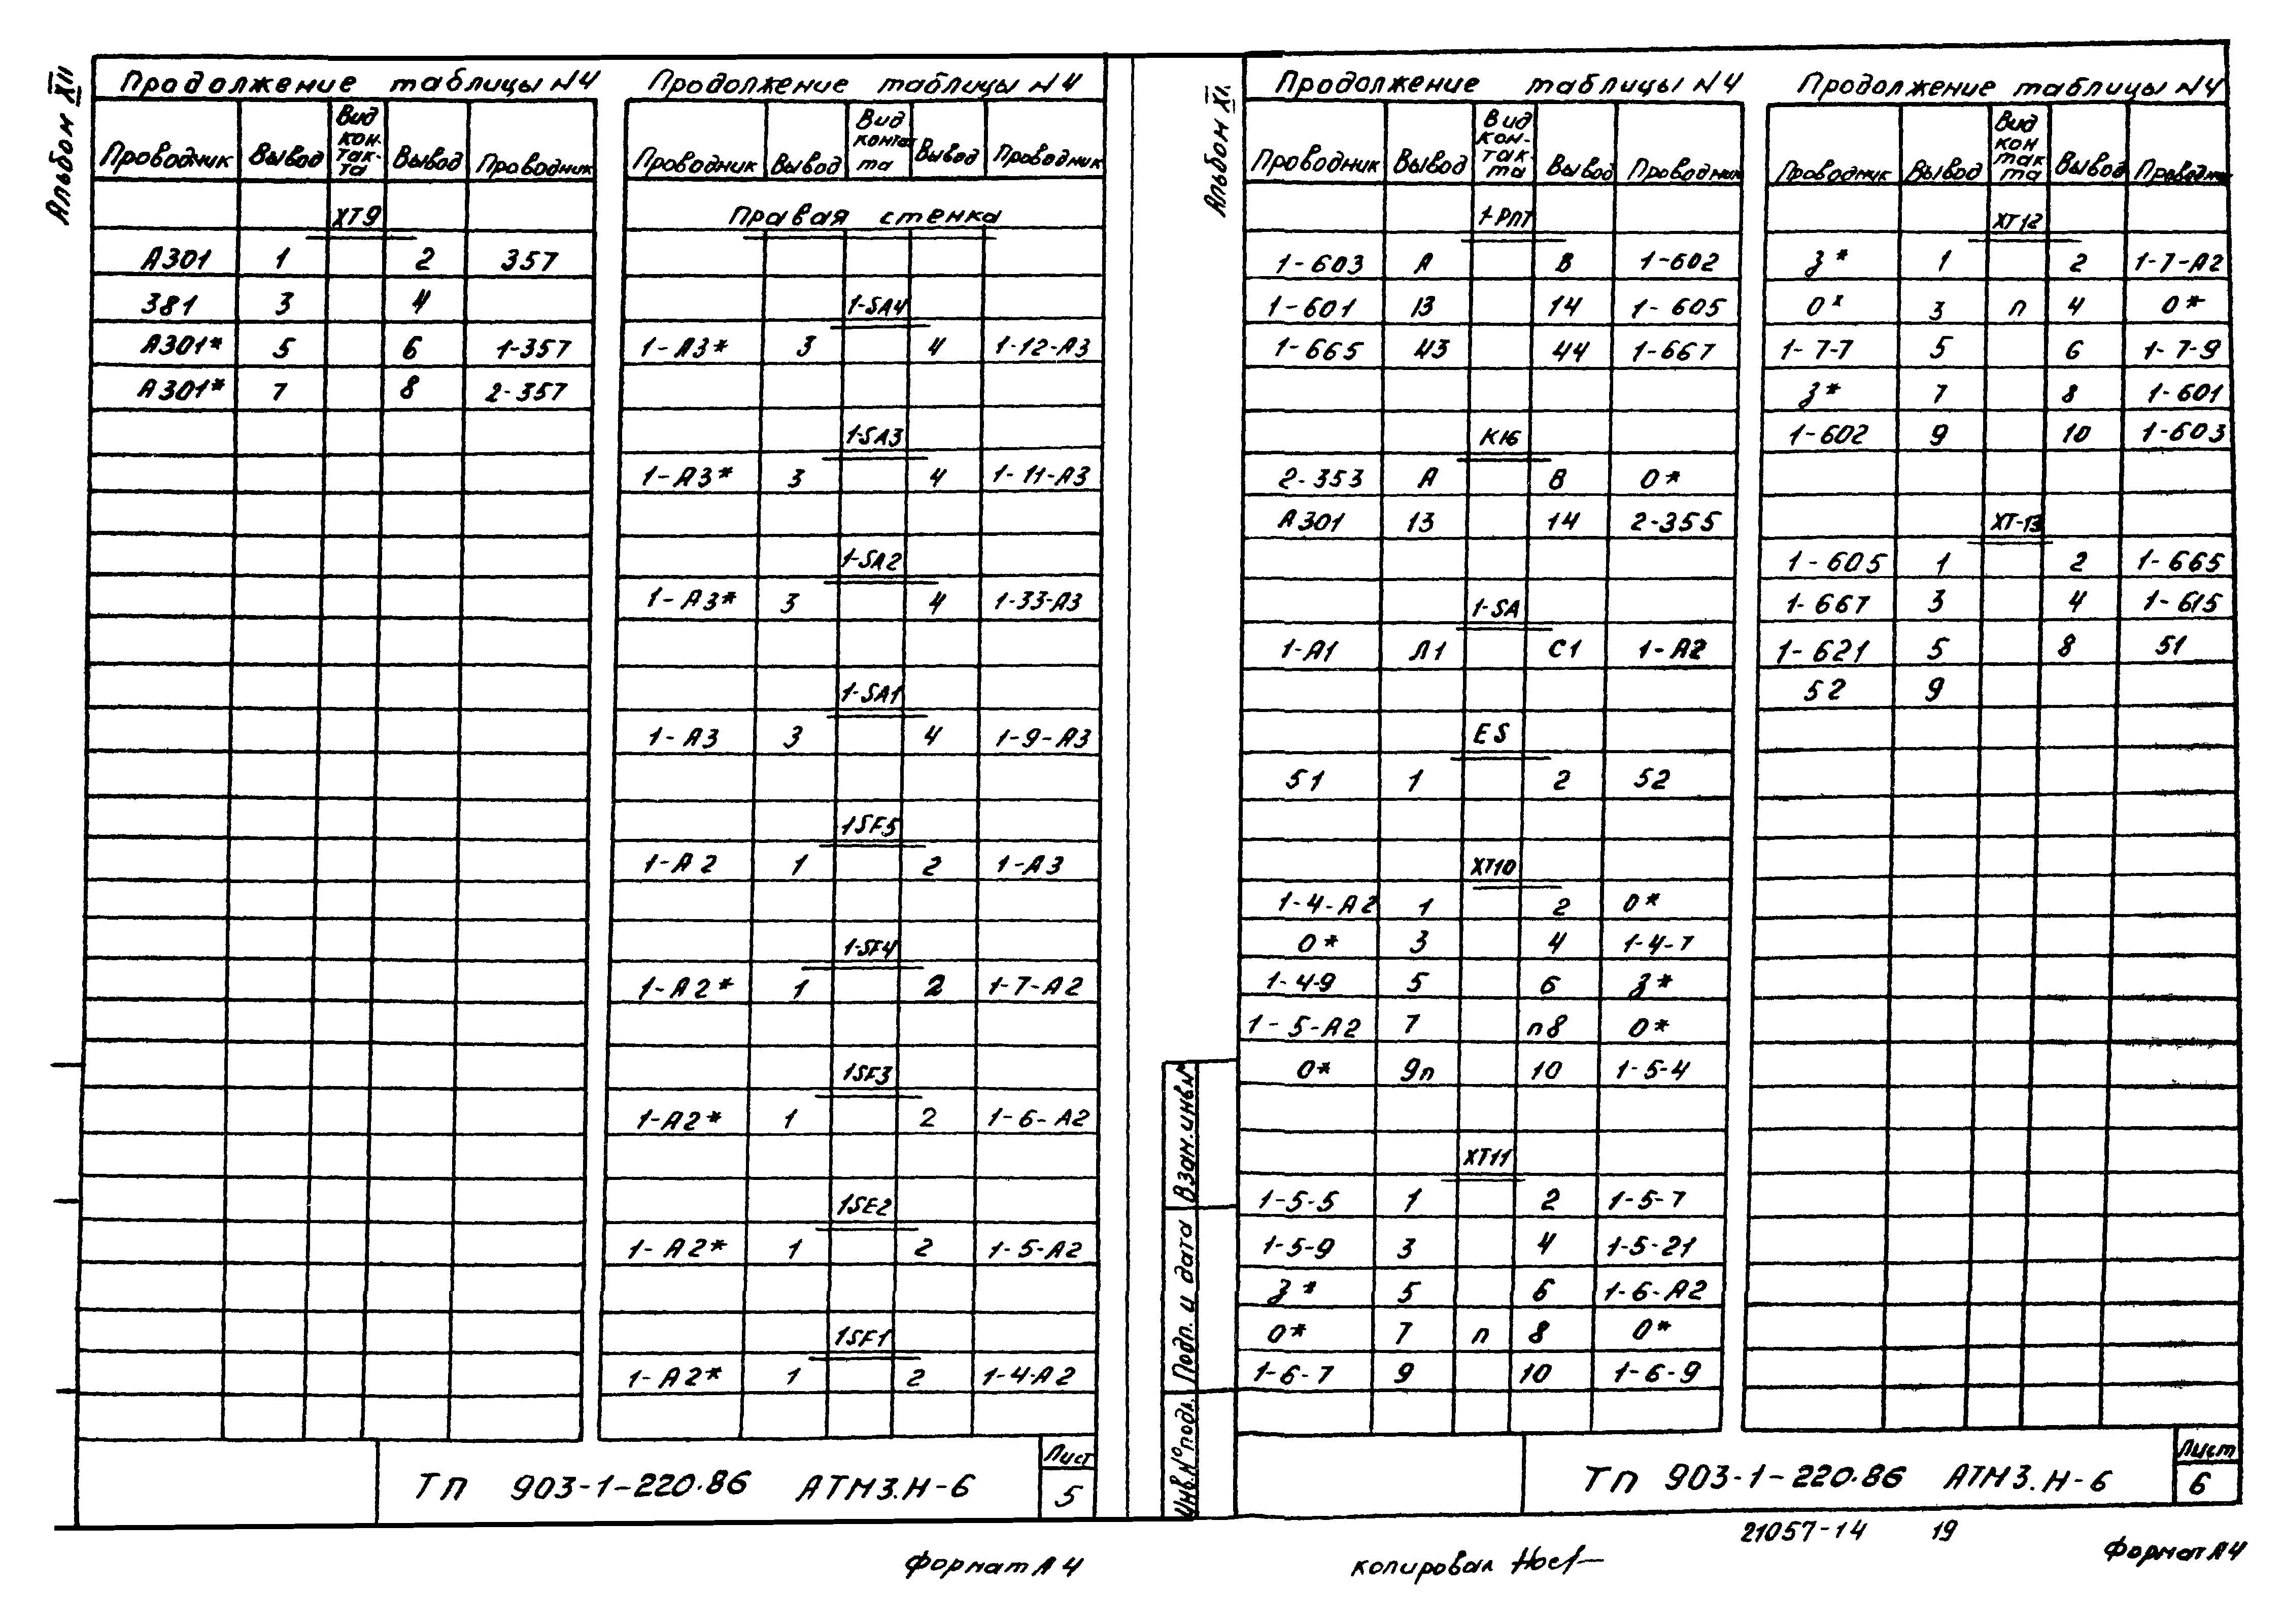 Альбом XII
Продолжение таблицы N4
Проводник Вывод Вид кон-так-та Вывод Проводник
XT9
А301 1 2 357
381 3 4
А301* 5 6 1-357
А301* 7 8 2-357
Продолжение таблицы N4
Проводник Вывод Вид контак та Вывод Проводник
Правая стенка
1-SA4
1-А3* 3 4 1-12-А3
1-SA3
1-А3* 3 4 1-11-А3
1-SA2
1-А3* 3 4 1-33-А3
1-SA1
1-А3 3 4 1-9-А3
1SF5
1-А2 1 2 1-А3
1-SF4
1-А2* 1 2 1-7-А2
1SF3
1-А2* 1 2 1-6-А2
1SE2
1-А2* 1 2 1-5-А2
1SF1
1-А2* 1 2 1-4-А2
ТП 903-1-220.86 АТМ3.Н-6
Лист
5
Формат А4
Альбом XI.
Продолжение таблицы N4
Проводник Вывод Вид кон-так-та Вывод Проводник
1-РПТ
1-603 А В 1-602
1-601 13 14 1-605
1-665 43 44 1-667
К16
2-353 А В 0*
А301 13 14 2-355
1-SA
1-А1 Л1 С1 1-А2
ES
51 1 2 52
XT10
1-4-А2 1 2 0*
0* 3 4 1-4-7
1-4-9 5 6 З*
1-5-А2 7 п8 0*
0* 9п 10 1-5-4
XT11
1-5-5 1 2 1-5-7
1-5-9 3 4 1-5-21
З* 5 6 1-6-А2
0* 7 п 8 0*
1-6-7 9 10 1-6-9
Продолжение таблицы N4
Проводник Вывод Вид кон так та Вывод Проводник
XT12
З* 1 2 1-7-А2
0* 3 п 4 0*
1-7-7 5 6 1-7-9
З* 7 8 1-601
1-602 9 10 1-603
XT-13
1-605 1 2 1-665
1-667 3 4 1-615
1-621 5 8 51
52 9
Взам.инв.№
Подп. и дата
Инв.№подл.
ТП 903-1-220.86 АТМ3.Н-6
Лист
6
21057-14 19
копировал
Формат А4